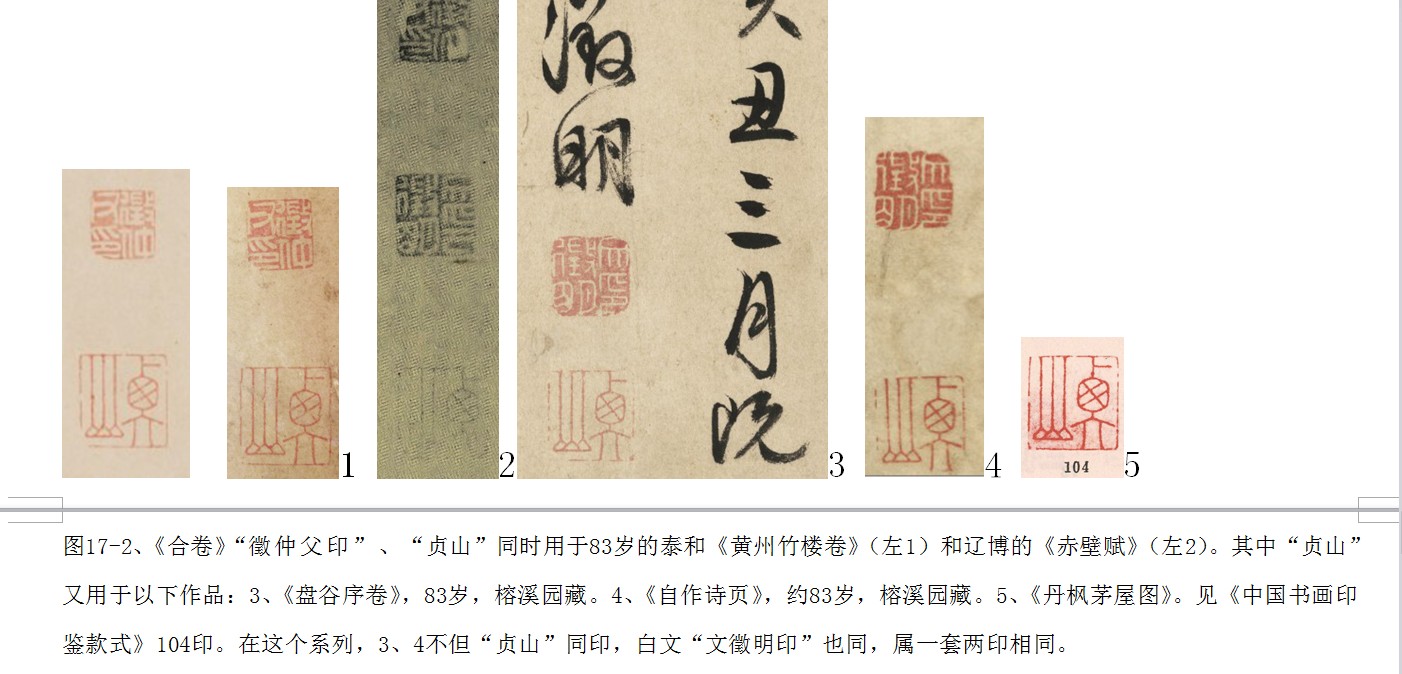 徵明
癸丑三月既
1
2
3
4
104
5
图17-2、《合卷》“徵仲父印”、“贞山”同时用于83岁的泰和《黄州竹楼卷》（左1）和辽博的《赤壁赋》（左2）。其中“贞山”
又用于以下作品：3、《盘谷序卷》，83岁，榕溪园藏。4、《自作诗页》，约83岁，榕溪园藏。5、《丹枫茅屋图》。见《中国书画印
鉴款式》104印。在这个系列，3、4不但“贞山”同印，白文“文徵明印”也同，属一套两印相同。